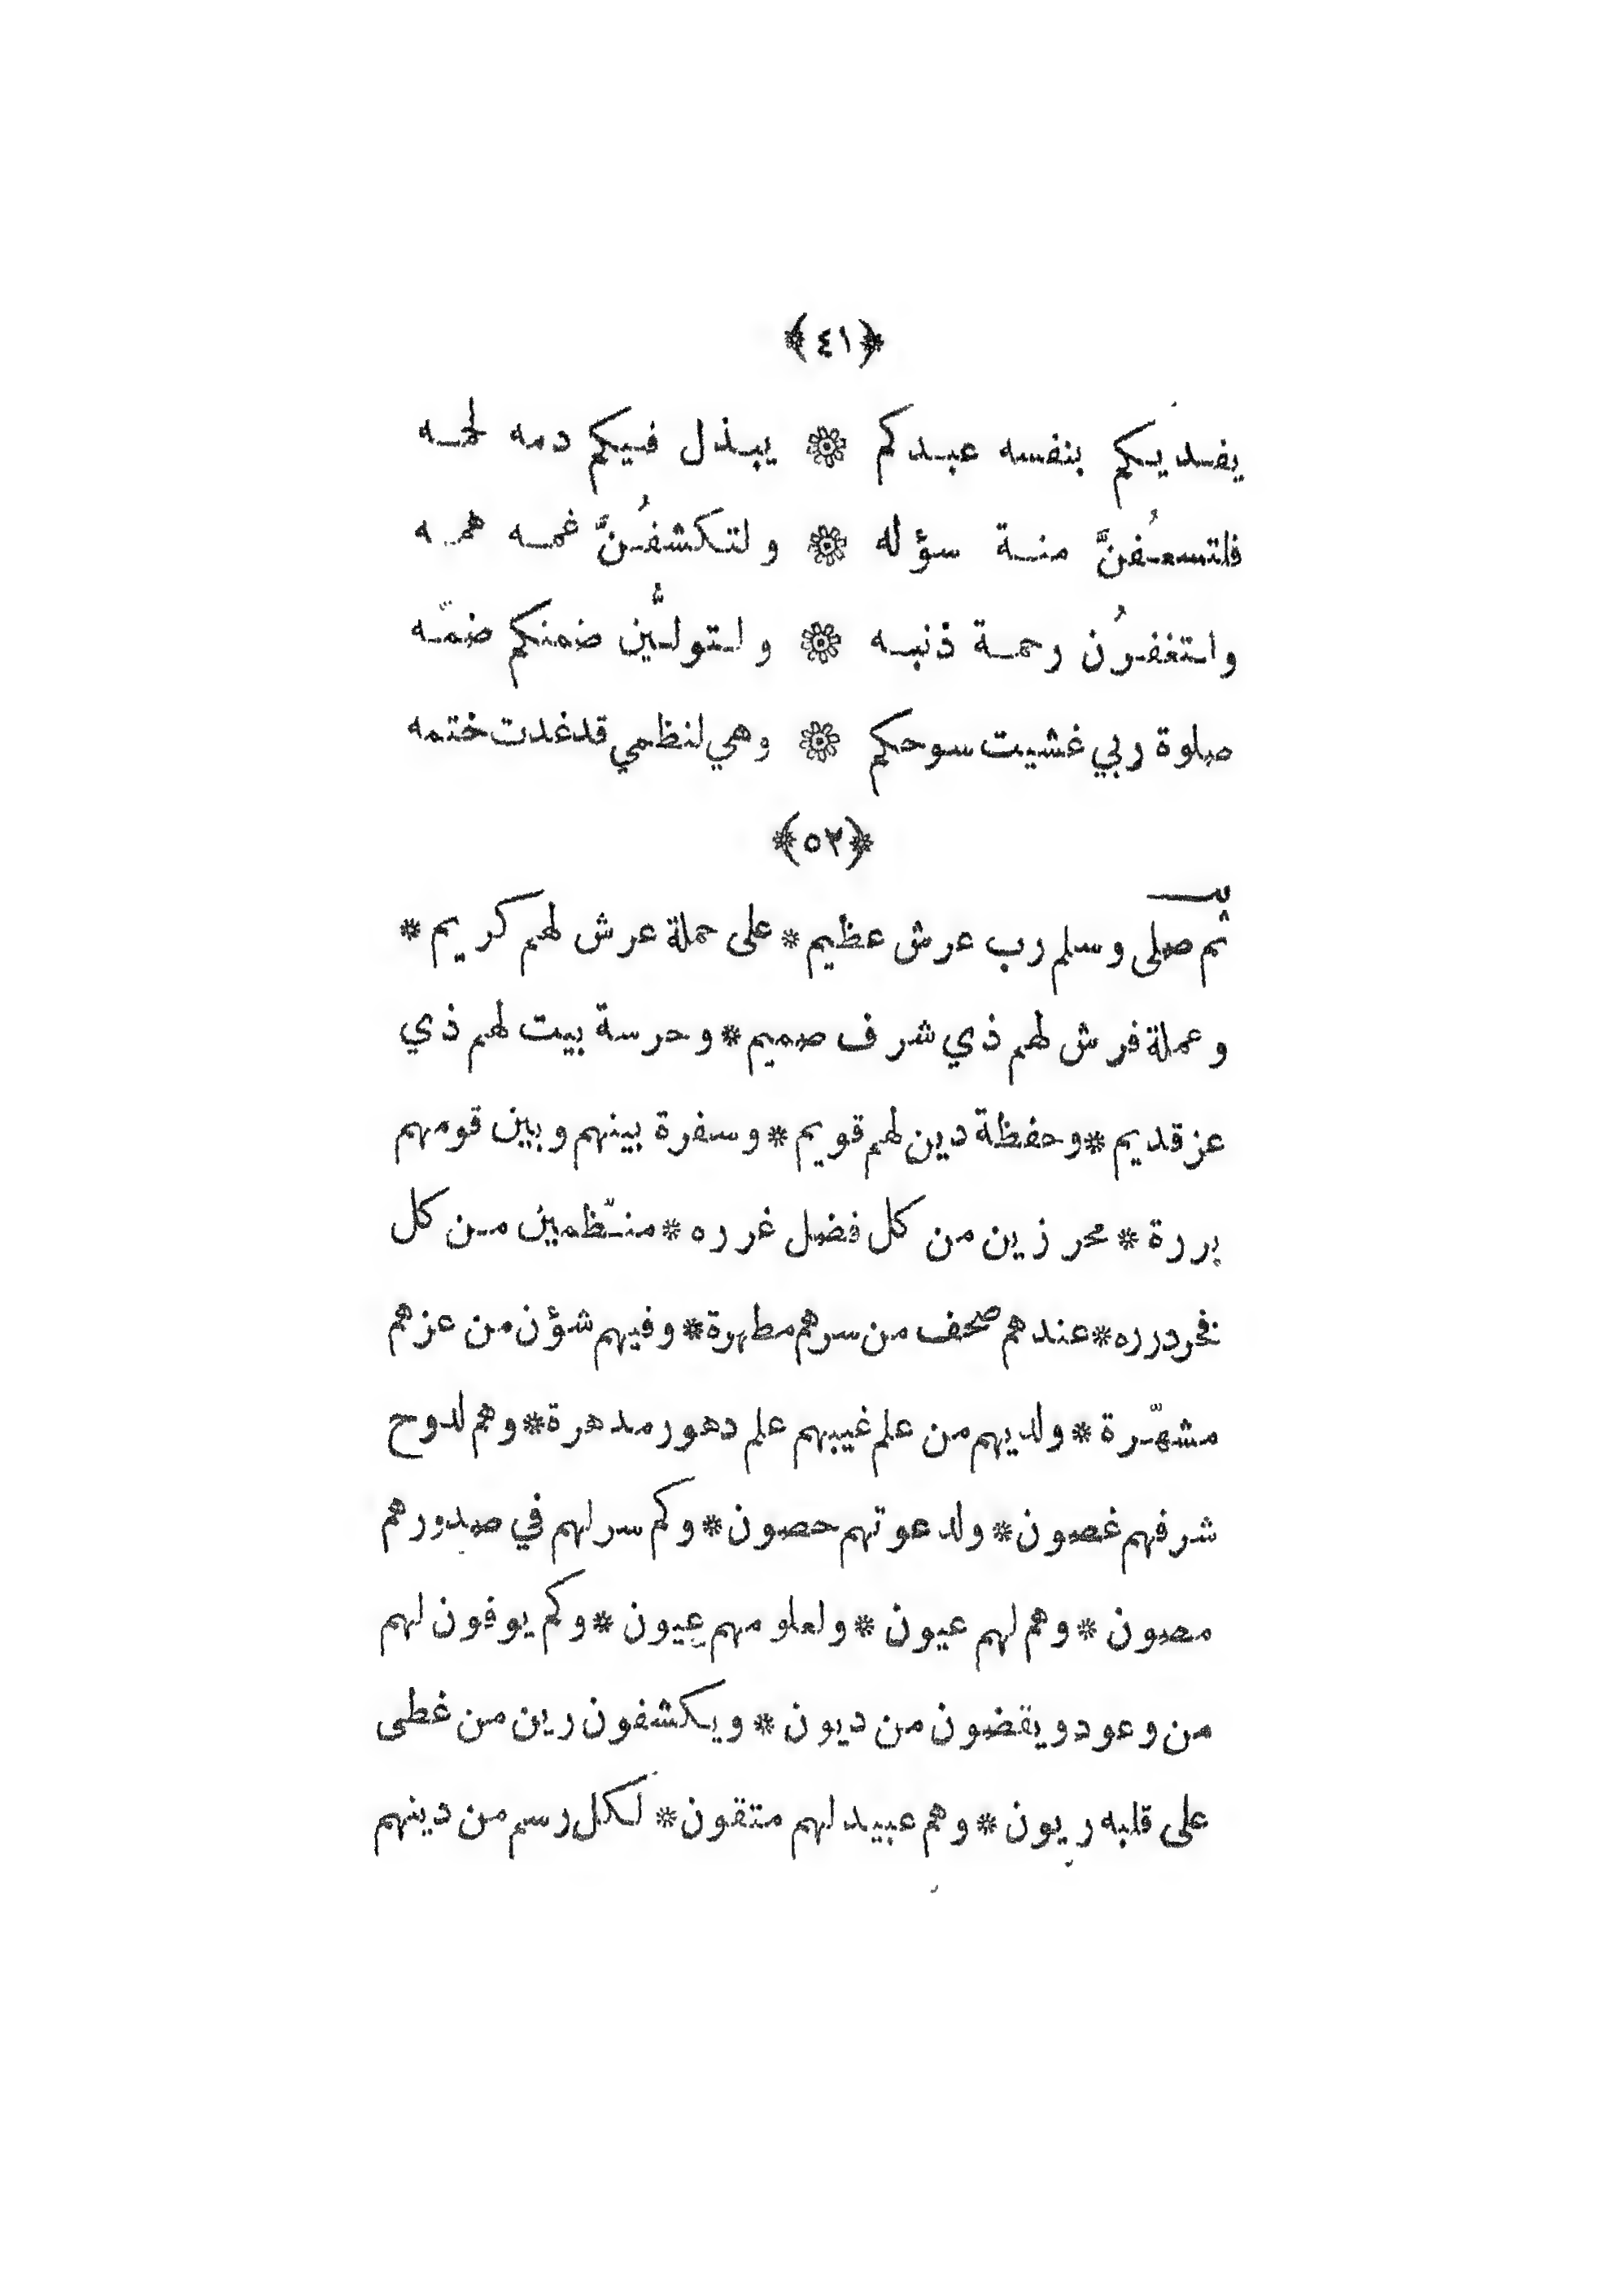 ﴿٤١﴾
يفديكم بنفسه عبدكم ❁ يبذل فيكم دمه لحمه
فلتسعفُنَّ منة سؤله ❁ ولتكشفُنَّ غمه همه
ولتغفرُن رحمة ذنبه ❁ ولتولّين ضمنكم ضمّه
صلوة ربي غشيت سوحكم ❁ وهي لنظمي قد غدت ختمه
﴿٥٢﴾
ثم صلى وسلم رب عرش عظيم * على حملة عرش لهم كريم *
وعملة فرش لهم ذي شرف صميم * وحرسة بيت لهم ذي
عز قديم * وحفظة دين لهم قويم * وسفرة بينهم وبين قومهم
بررة * محرزين من كل فضل غرره * منتّظمين من كل
فخر درره * عندهم صحف من سرهم مطهرة * وفيهم شؤن من عزهم
مشهّرة * ولديهم من علم غيبهم علم دهور مدهرة * وهم لدوح
شرفهم غصون * ولدعوتهم حصون * وكم سر لهم في صدورهم
مصون * وهم لهم عيون * ولعلومهم عيون * وكم يوفون لهم
من وعود ويقضون من ديون * ويكشفون رين من غطى
على قلبه ريون * وهم عبيد لهم متقون * لكل رسم من دينهم